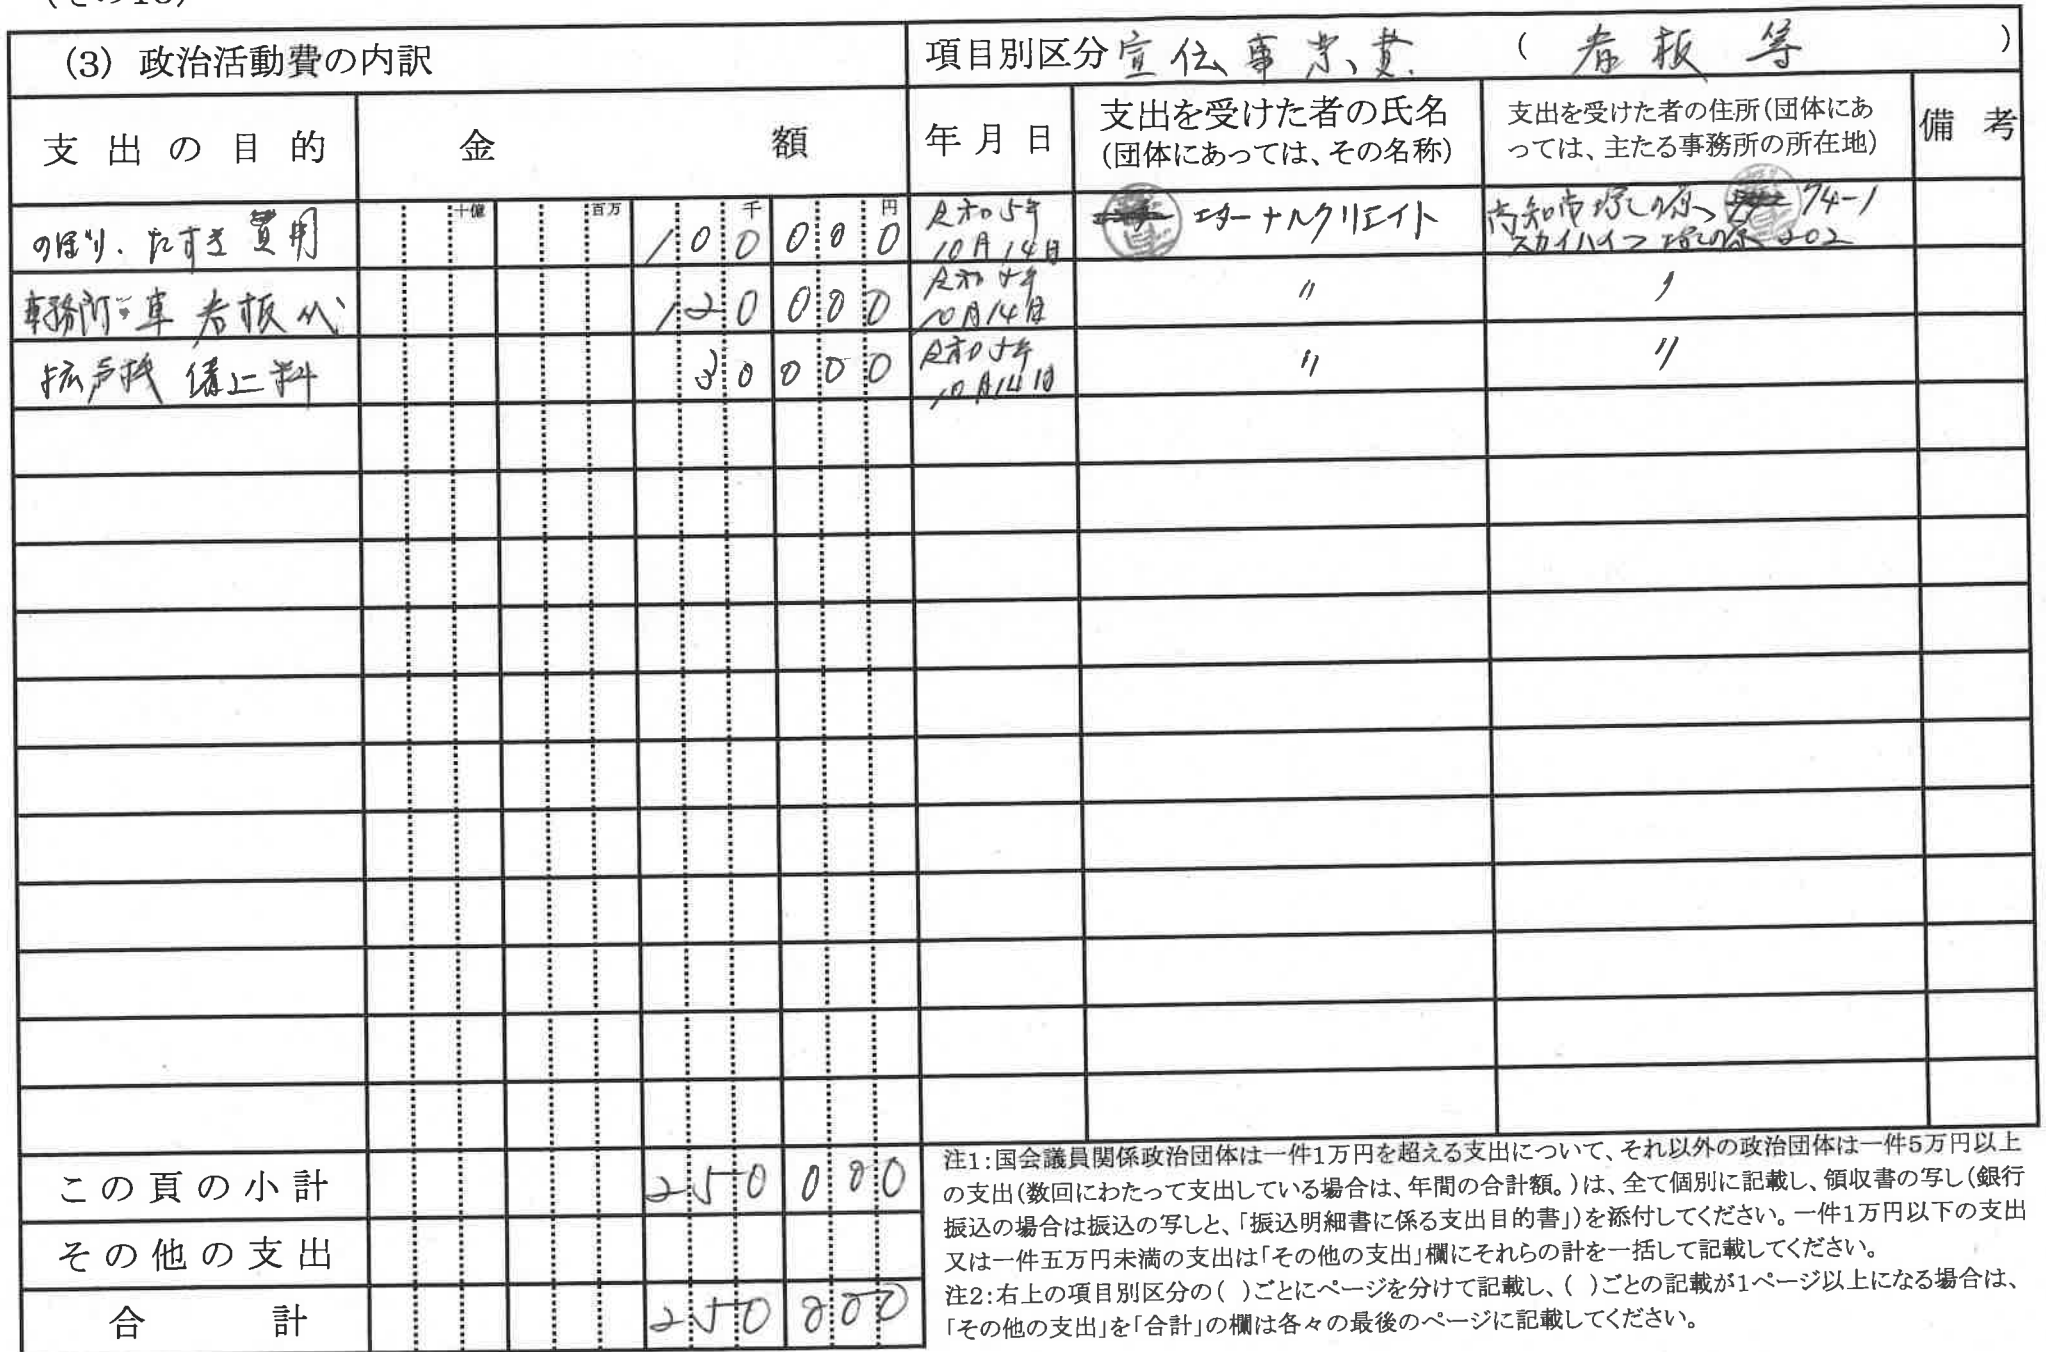 (3) 政治活動費の内訳
項目別区分 宣伝事業費 ( 看板等 )
支出の目的
金額
年月日
支出を受けた者の氏名
(団体にあっては、その名称)
支出を受けた者の住所(団体にあ
っては、主たる事務所の所在地)
備考
十億 百万 千 円
のぼり、たすき費用 100000 令和5年10月14日 エターナルクリエイト 高知市塚ノ原 74-1
スカイハイツ塚の原202
事務所・車 看板代 120000 令和5年10月14日 〃 〃
拡声機 借上料 30000 令和5年10月14日 〃 〃
この頁の小計 250000
その他の支出
合計 250000
注1:国会議員関係政治団体は一件1万円を超える支出について、それ以外の政治団体は一件5万円以上
の支出(数回にわたって支出している場合は、年間の合計額。)は、全て個別に記載し、領収書の写し(銀行
振込の場合は振込の写しと、「振込明細書に係る支出目的書」)を添付してください。一件1万円以下の支出
又は一件五万円未満の支出は「その他の支出」欄にそれらの計を一括して記載してください。
注2:右上の項目別区分の( )ごとにページを分けて記載し、( )ごとの記載が1ページ以上になる場合は、
「その他の支出」を「合計」の欄は各々の最後のページに記載してください。